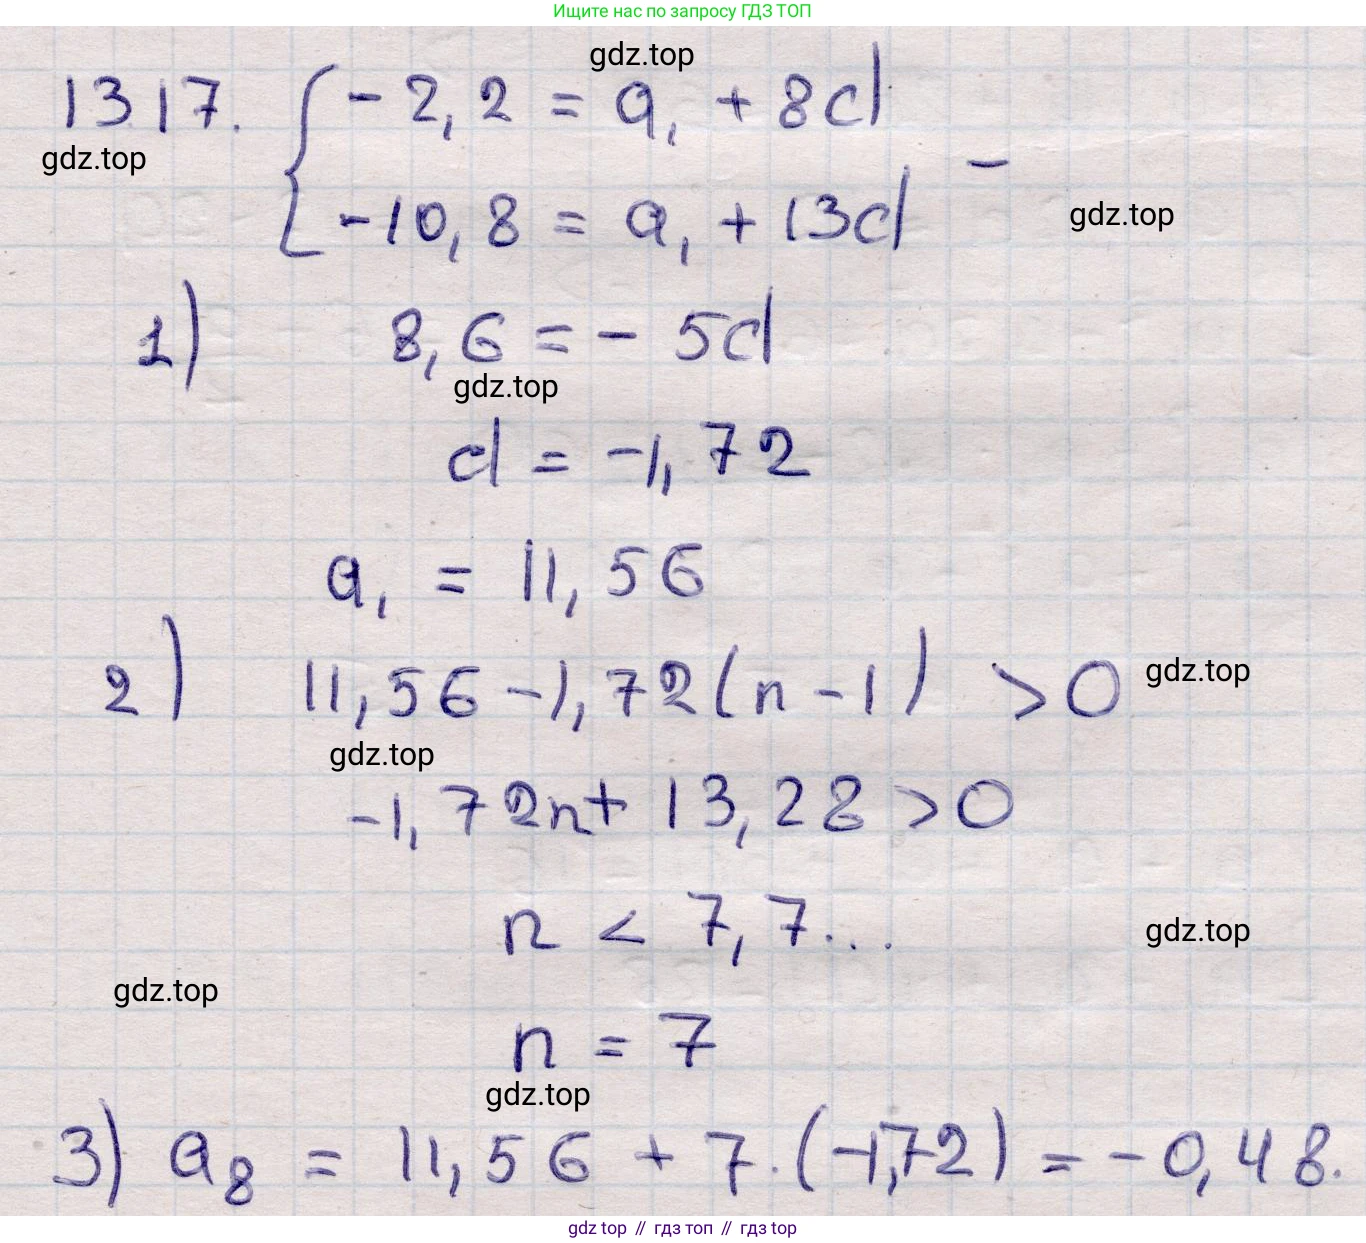 Ищите нас по запросу ГДЗ ТОП
gdz.top
1317. { -2,2 = a₁ + 8d
gdz.top
-
-10,8 = a₁ + 13d
gdz.top
1) 8,6 = - 5d
gdz.top
d = -1,72
a₁ = 11,56
2) 11,56 - 1,72(n - 1) > 0
gdz.top
gdz.top
-1,72n + 13,28 > 0
n < 7,7...
gdz.top
gdz.top
n = 7
gdz.top
3) a₈ = 11,56 + 7·(-1,72) = -0,48.
gdz top // гдз топ // гдз top